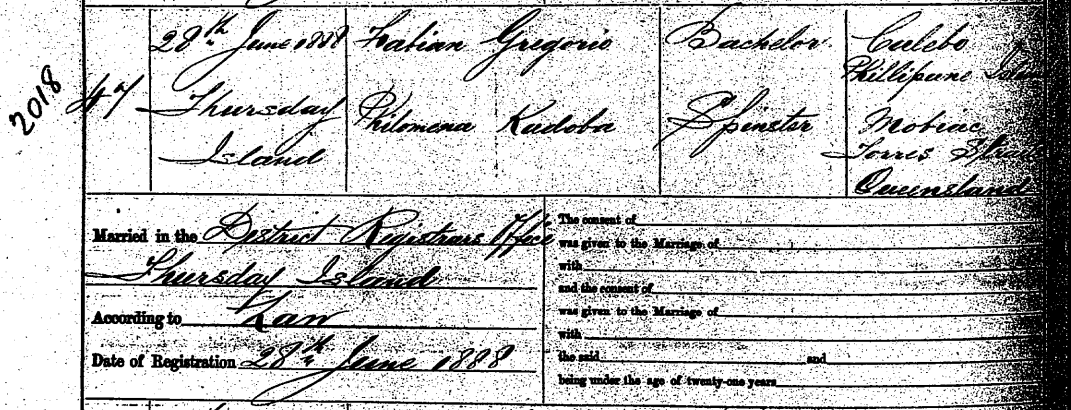 2018
47
28th June 1888
Thursday
Island
Fabian Gregorio
Philomena Kudoba
Bachelor
Spinster
Culebo
Phillipune
Mobiac
Torres
Queensland
Married in the District Registrars Office
Thursday Island
According to Law
Date of Registration 28th June 1888
The consent of
was given to the Marriage of
with
and the consent of
was given to the Marriage of
with
the said and
being under the age of twenty-one years